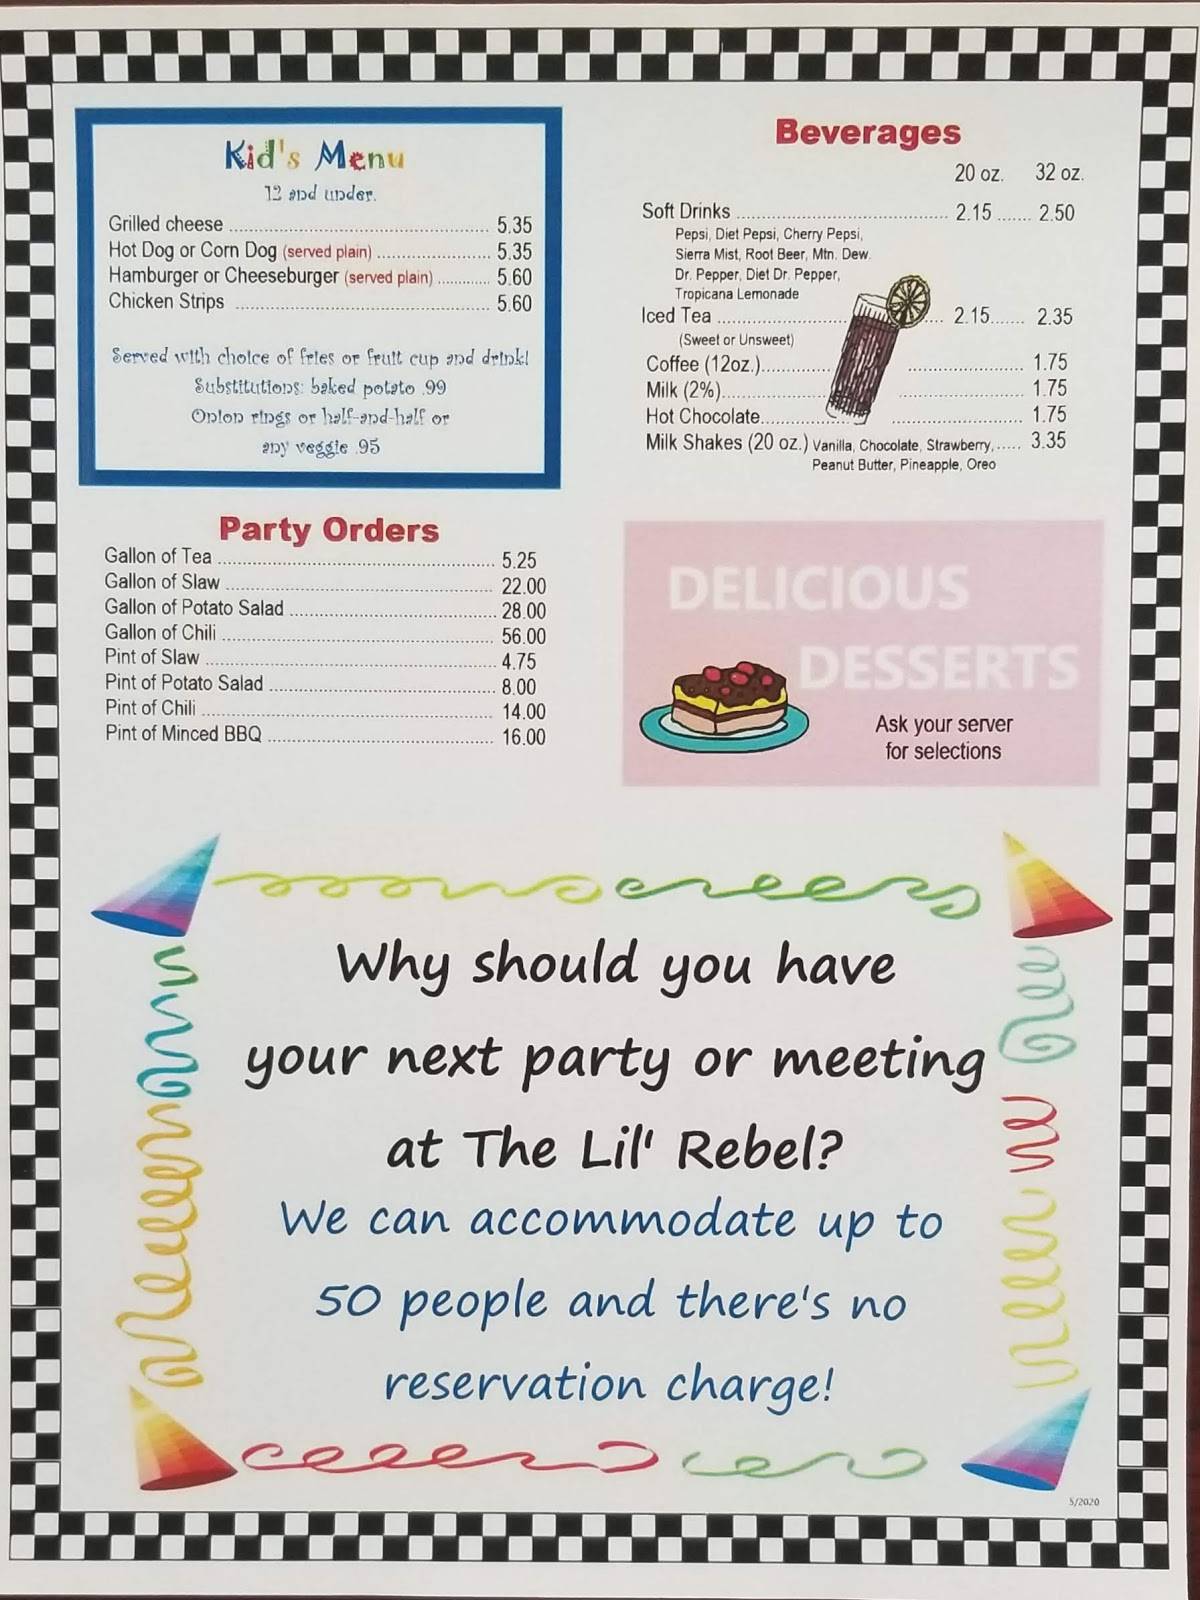 Kid's Menu
12 and under.
Grilled cheese ........ 5.35
Hot Dog or Corn Dog (served plain) ........ 5.35
Hamburger or Cheeseburger (served plain) ........ 5.60
Chicken Strips ........ 5.60
Served with choice of fries or fruit cup and drink!
Substitutions: baked potato .99
Onion rings or half-and-half or
any veggie .95
Party Orders
Gallon of Tea ........ 5.25
Gallon of Slaw ........ 22.00
Gallon of Potato Salad ........ 28.00
Gallon of Chili ........ 56.00
Pint of Slaw ........ 4.75
Pint of Potato Salad ........ 8.00
Pint of Chili ........ 14.00
Pint of Minced BBQ ........ 16.00
Beverages
20 oz. 32 oz.
Soft Drinks ........ 2.15 ....... 2.50
Pepsi, Diet Pepsi, Cherry Pepsi,
Sierra Mist, Root Beer, Mtn. Dew.
Dr. Pepper, Diet Dr. Pepper,
Tropicana Lemonade
Iced Tea ........ 2.15....... 2.35
(Sweet or Unsweet)
Coffee (12oz.)........ 1.75
Milk (2%)........ 1.75
Hot Chocolate........ 1.75
Milk Shakes (20 oz.) Vanilla, Chocolate, Strawberry, ..... 3.35
Peanut Butter, Pineapple, Oreo
DELICIOUS
DESSERTS
Ask your server
for selections
Why should you have
your next party or meeting
at The Lil' Rebel?
We can accommodate up to
50 people and there's no
reservation charge!
5/2020